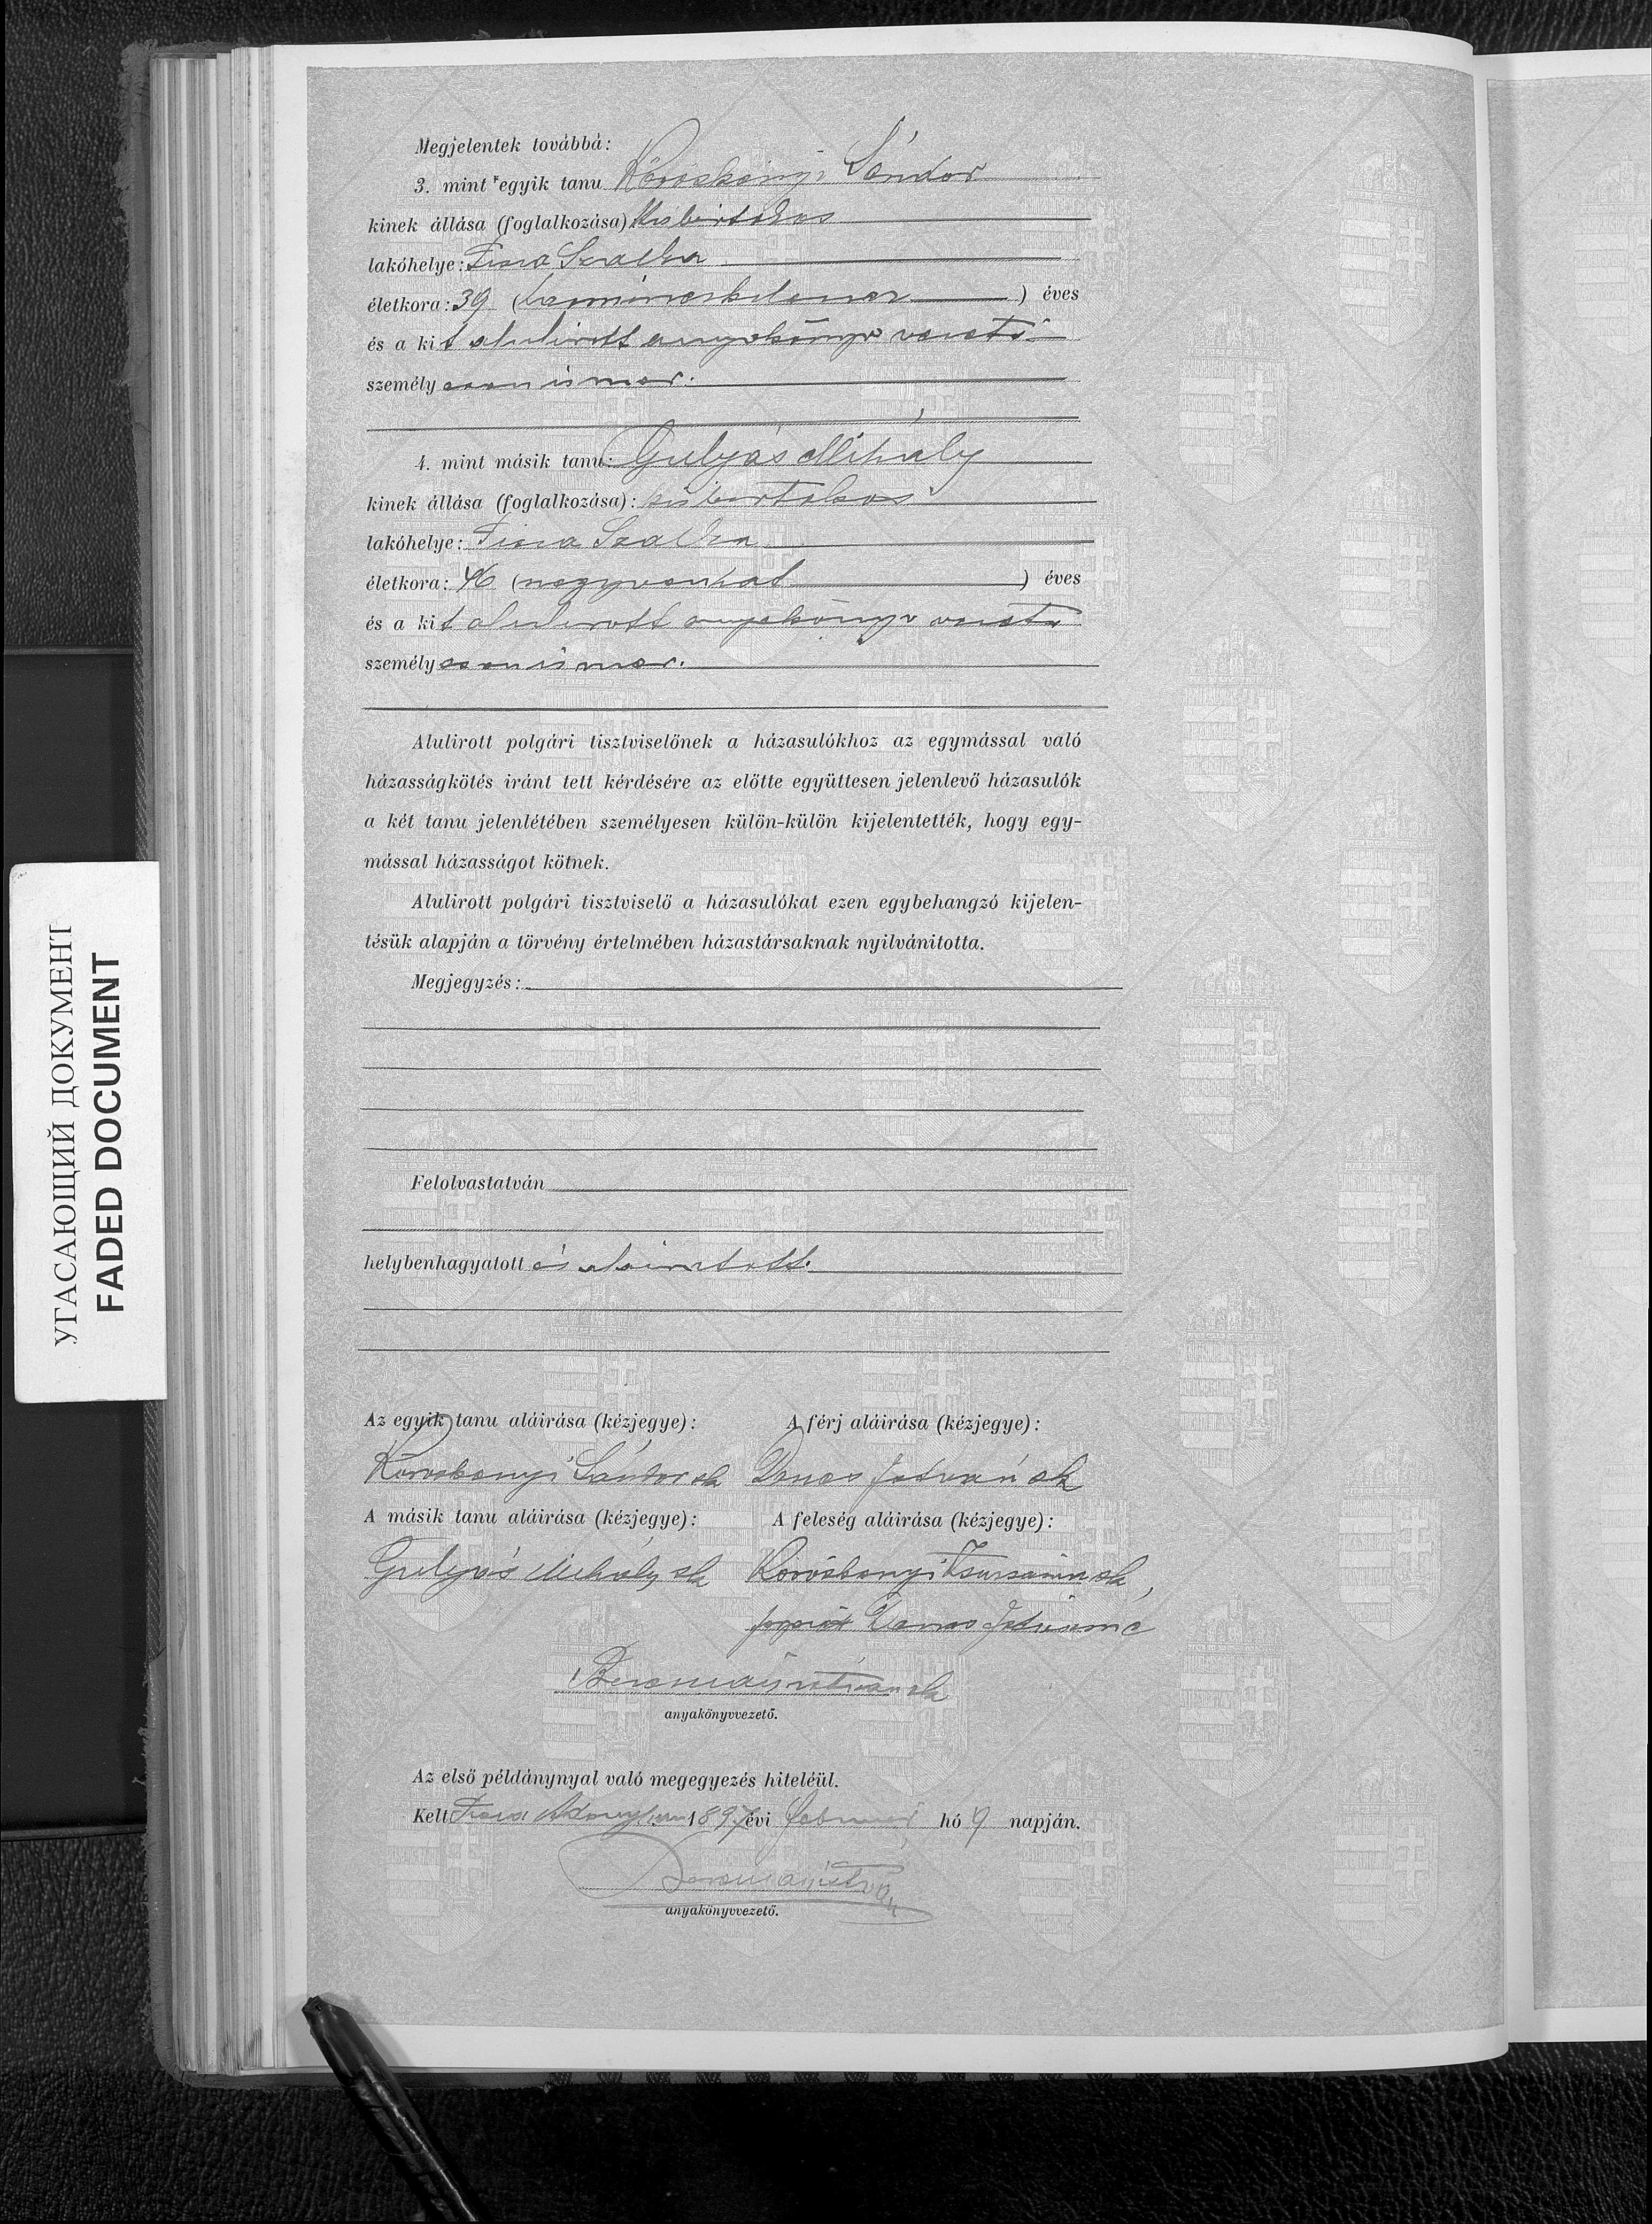 Megjelentek továbbá:
3. mint egyik tanu Kőröskényi Sándor
kinek állása (foglalkozása) kisbirtokos
lakóhelye: Tisza Szalka
életkora: 39 (harminczkilencz) éves
és a kit alulirott anyakönyvvezető
személyesen ismer.
4. mint másik tanu: Gulyás Mihály
kinek állása (foglalkozása): kisbirtokos
lakóhelye: Tisza Szalka
életkora: 46 (negyvenhat) éves
és a kit alulirott anyakönyvvezető
személyesen ismer.
Alulirott polgári tisztviselőnek a házasulókhoz az egymással való
házasságkötés iránt tett kérdésére az előtte együttesen jelenlevő házasulók
a két tanu jelenlétében személyesen külön-külön kijelentették, hogy egy-
mással házasságot kötnek.
Alulirott polgári tisztviselő a házasulókat ezen egybehangzó kijelen-
tésük alapján a törvény értelmében házastársaknak nyilvánitotta.
Megjegyzés:
Felolvastatván
helybenhagyatott és aláiratott.
Az egyik tanu aláirása (kézjegye): A férj aláirása (kézjegye):
Kőröskényi Sándor sk István sk
A másik tanu aláirása (kézjegye): A feleség aláirása (kézjegye):
Gulyás Mihály sk Kőröskényi Zsuzsánna sk,
Istvánné
István sk
anyakönyvvezető.
Az első példánynyal való megegyezés hiteléül.
Kelt Tisza Adonyban 1897 évi február hó 9 napján.
István
anyakönyvvezető.
УГАСАЮЩИЙ ДОКУМЕНТ
FADED DOCUMENT